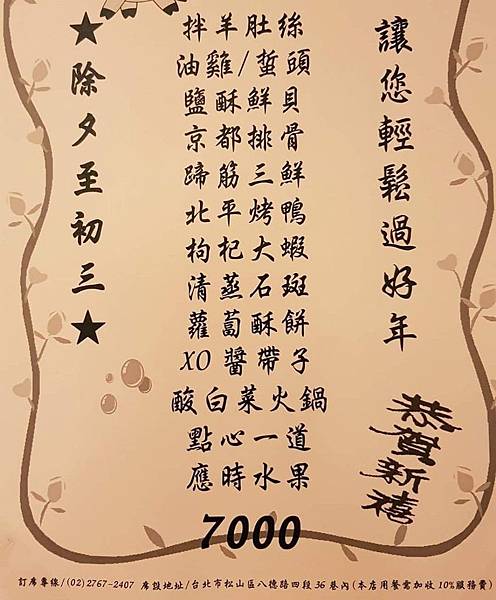 讓您輕鬆過好年
拌羊肚絲
油雞/蜇頭
鹽酥鮮貝
京都排骨
蹄筋三鮮
北平烤鴨
枸杞大蝦
清蒸石斑
蘿蔔酥餅
XO醬帶子
酸白菜火鍋
點心一道
應時水果
7000
★除夕至初三★
恭賀新禧
訂席專線/(02)2767-2407 席設地址/台北市松山區八德路四段36巷內(本店用餐需加收10%服務費)